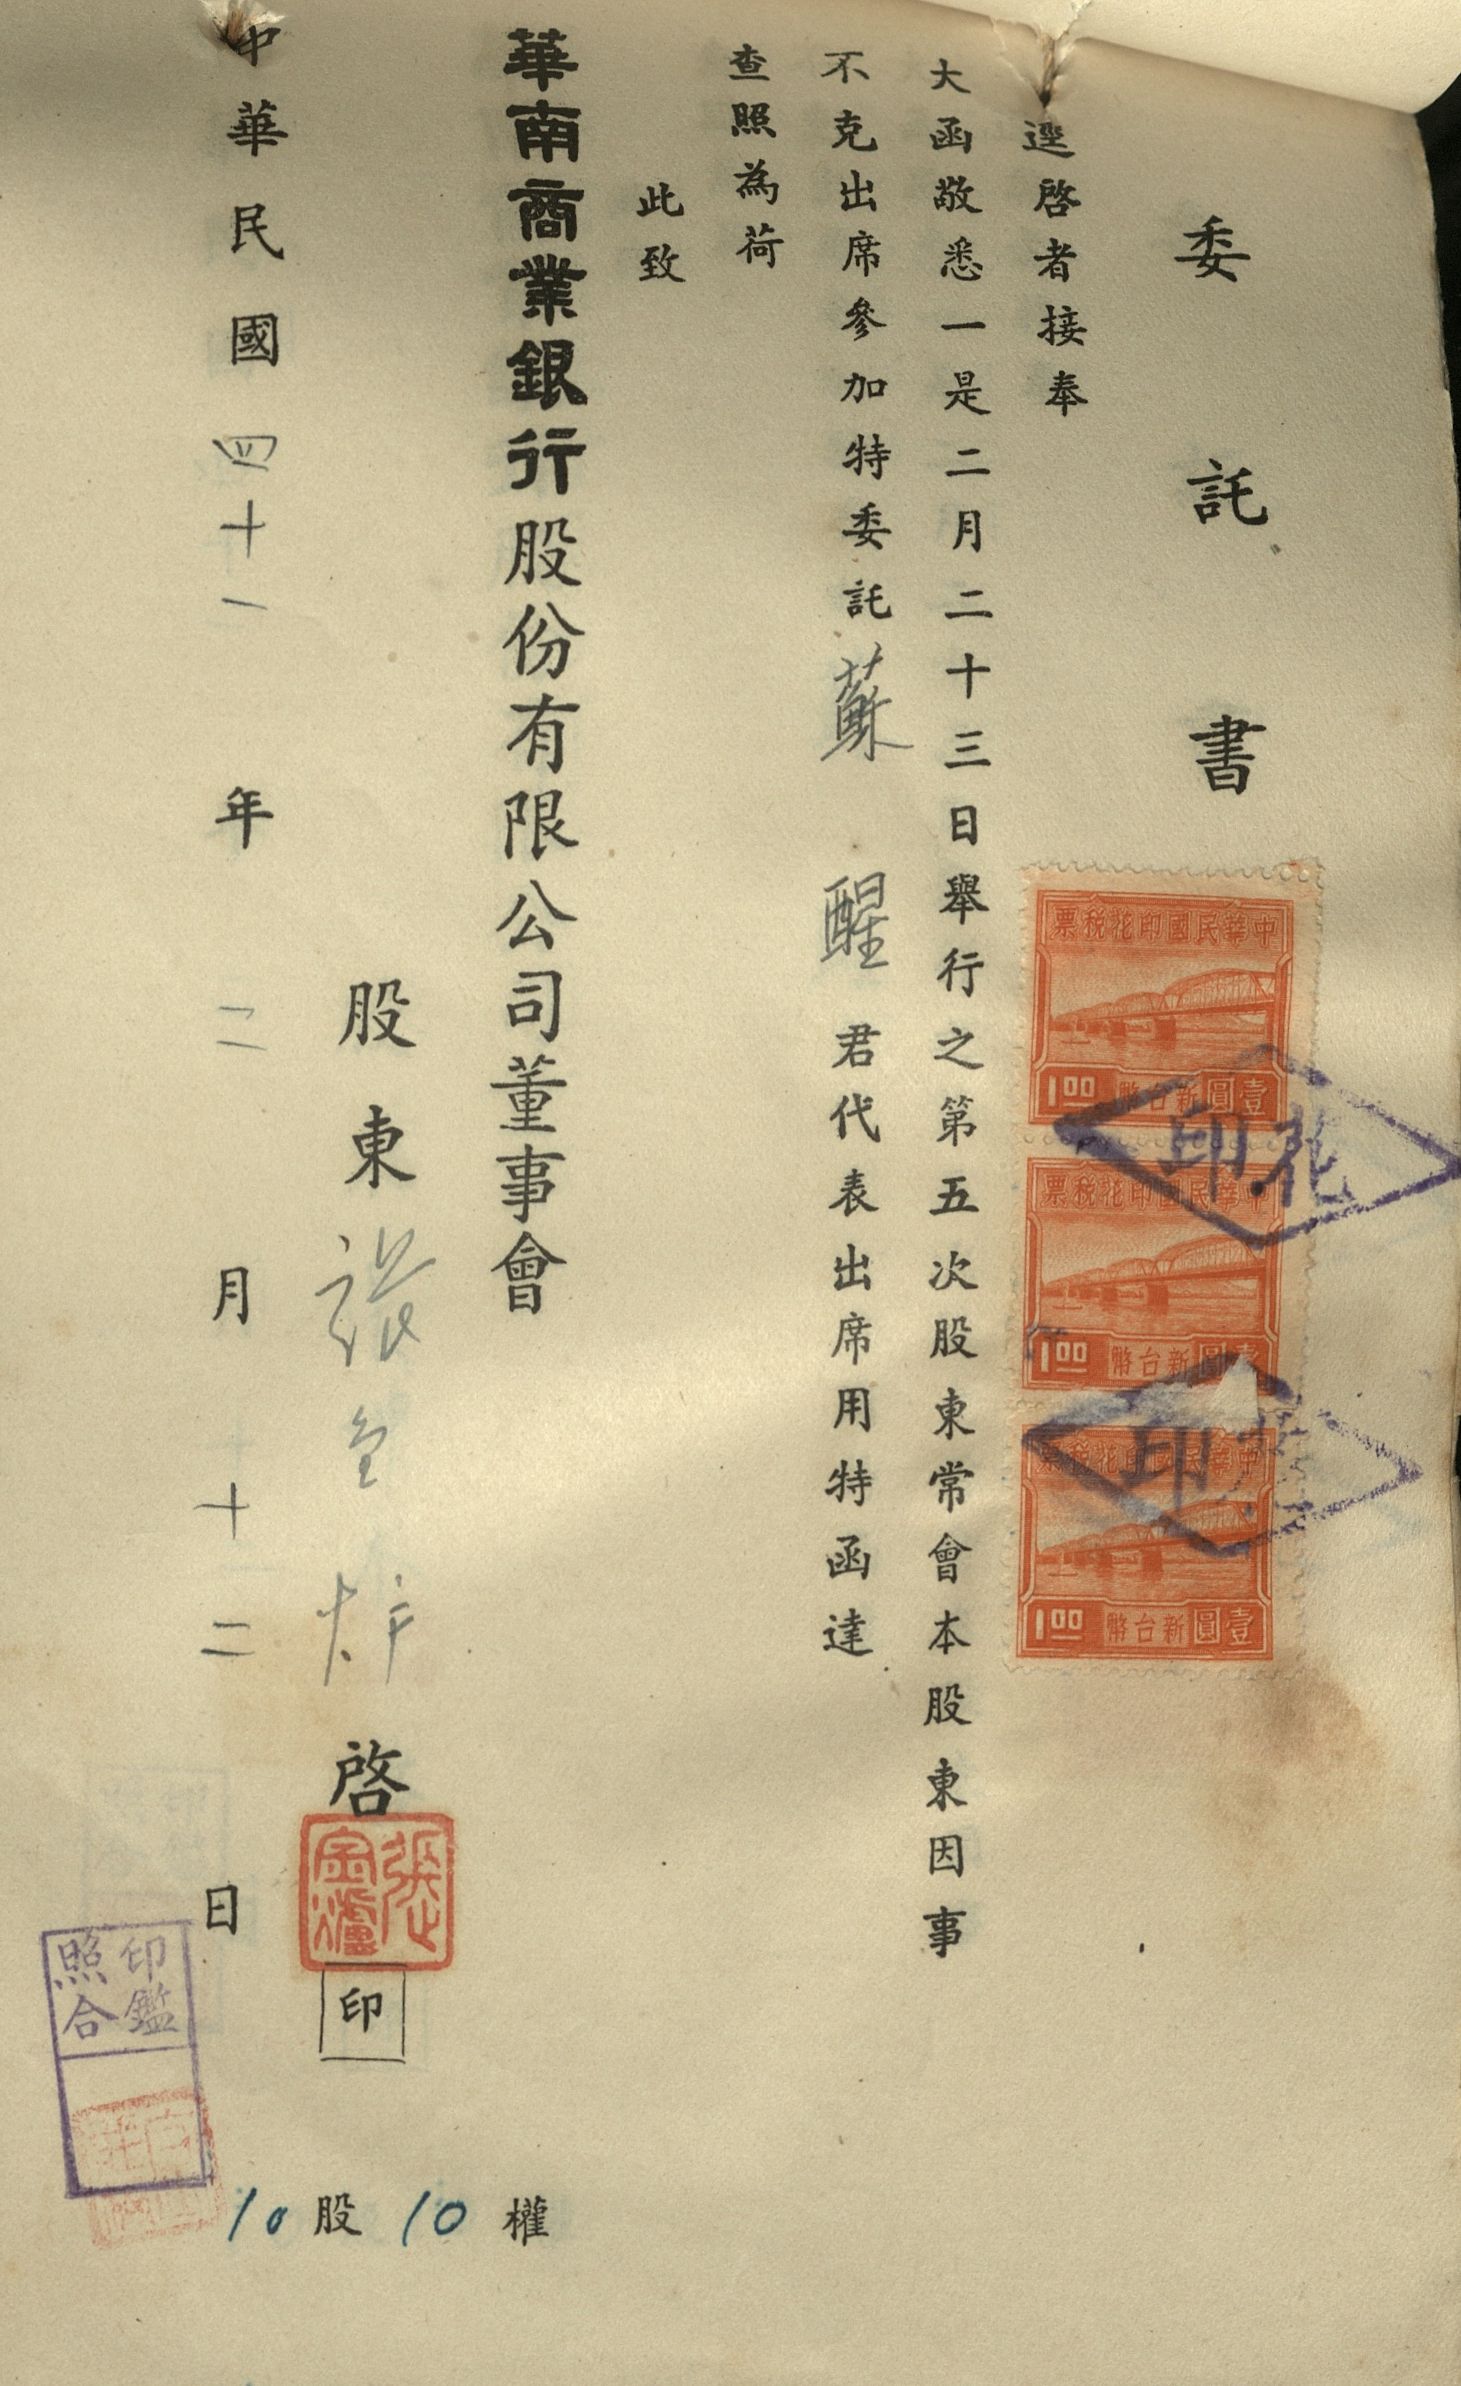 委託書
逕啓者接奉
大函敬悉一是二月二十三日舉行之第五次股東常會本股東因事
不克出席參加特委託蘇醒君代表出席用特函達
查照為荷
此致
華南商業銀行股份有限公司董事會
股東張金炉啓
張金爐
印
中華民國四十一年二月十二日
10股10權
印鑑照合
票稅花印國民華中
1.00 幣台新圓壹
印花
票稅花印國民華中
1.00 幣台新圓壹
印花
票稅花印國民華中
1.00 幣台新圓壹